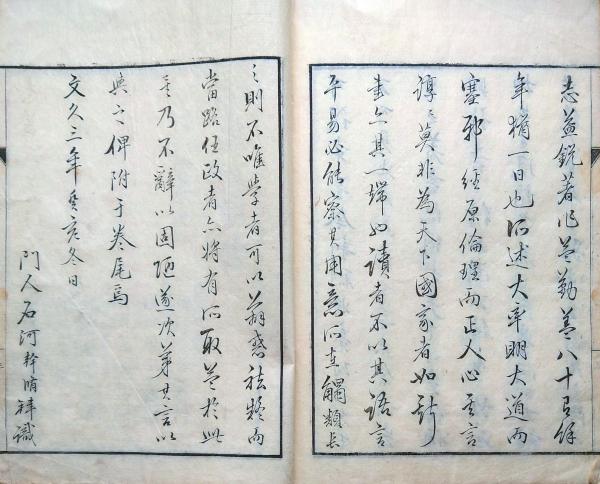 志益鋭著作益勤蓋八十有餘
年猶一日也所述大率明大道而
塞邪径原倫理而正人心其言
諄々莫非為天下國家者如斯
書亦其一端如讀者不以其語言
平易必能察其用意所在觸類長
之則不唯學者可以蘇惑祛疑而
當路任政者亦將有所取益於此
是乃不辭以固陋遂次第其言以
典之俾附于巻尾焉
文久三年癸亥冬日
門人石河幹脩拜識